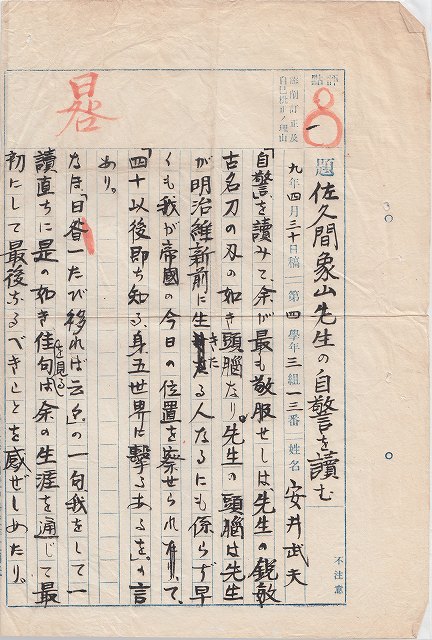 評點
八
一
添削訂正及
自己批正ノ理由
晷
題 佐久間象山先生の自警を讀む
九年四月三十日稿 第四學年三組一三番 姓名 安井武夫
「自警」を讀みて、余が最も敬服せしは先生の鋭敏
古名刀の刃の如き頭腦なり。先生の頭腦は先生
が明治維新前に生きたる人なるにも係らず早
くも我が帝國の今日の位置を察せられて、
「四十以後即ち知る、身五世界に擊るあるを」の言
あり。
なほ、「日晷一たび移れば云々」の一句我をして一
讀直ちに是の如き佳句を見るは余の生涯を通じて最
初にして最後なるべきことを感ぜしめたり。
不注意